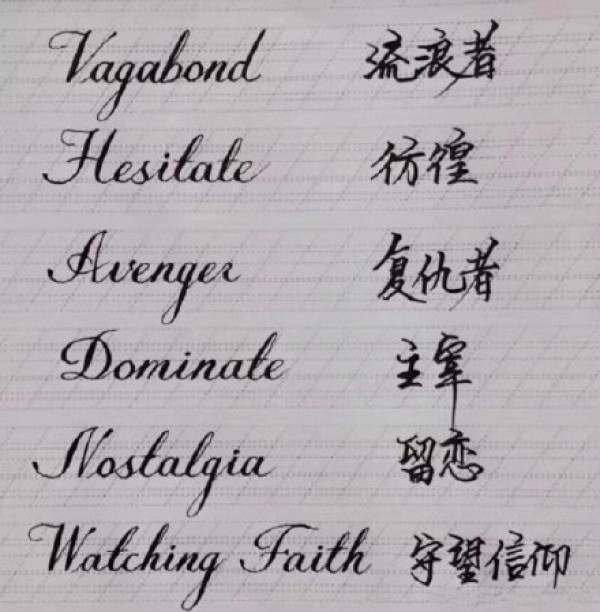 Vagabond 流浪者
Hesitate 彷徨
Avenger 复仇者
Dominate 主宰
Nostalgia 留恋
Watching Faith 守望信仰